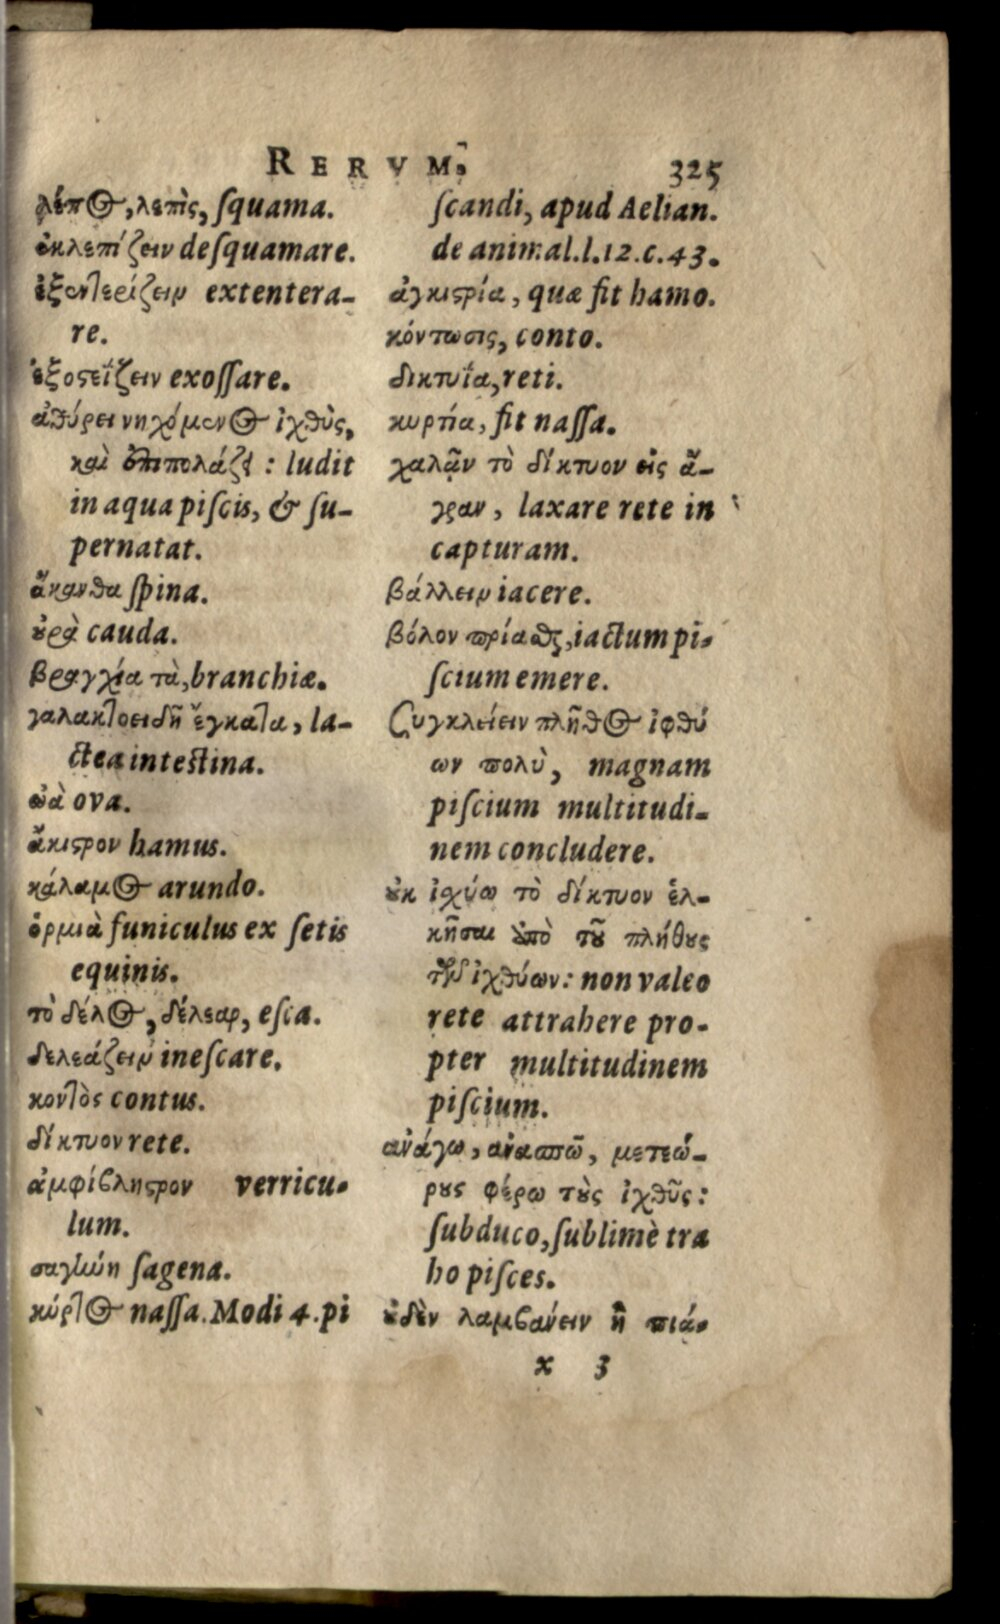 RERVM. 325
λέπος, λεπὶς, ſquama.
ἐκλεπίζειν deſquamare.
ἐξεντερίζειν extentera-
re.
ἐξοςεΐζειν exoſſare.
ἀθύρει νηχόμενος ἰχθὺς,
καὶ ἐπιπολάζει : ludit
in aqua piſcis, & ſu-
pernatat.
ἄκανθα ſpina.
ȣρὰ cauda.
βραγχία τὰ, branchiæ.
γαλακτοειδῆ ἔγκατα, la-
ctea inteſtina.
ὠὰ ova.
ἄκιςρον hamus.
κάλαμος arundo.
ὁρμιὰ funiculus ex ſetis
equinis.
τὸ δέλος, δέλεαρ, eſca.
δελεάζειν ineſcare.
κοντὸς contus.
δίκτυον rete.
ἀμφίβληςρον verricu-
lum.
σαγήνη ſagena.
κύρτος naſſa. Modi 4. pi
ſcandi, apud Aelian.
de animal. l. 12. c. 43.
ἀγκιςρία, quæ fit hamo.
κόντωσις, conto.
δικτυΐα, reti.
κυρτία, fit naſſa.
χαλᾷν τὸ δίκτυον εἰς ἄ-
γραν, laxare rete in
capturam.
βάλλειν iacere.
βόλον πρίαθς, iactum pi-
ſcium emere.
Συγκλείειν πλῆθος ἰφθύ
ων πολὺ, magnam
piſcium multitudi-
nem concludere.
ȣκ ἰχύω τὸ δίκτυον ἑλ-
κῆσαι ὑπὸ τȣ͂ πλήθȣς
τῶν ἰχθύων: non valeo
rete attrahere pro-
pter multitudinem
piſcium.
ανάγω, ανασπῶ, μετεώ-
ρȣς φέρω τȣ̀ς ἰχθῦς:
ſubduco, ſublimè tra
ho piſces.
ȣδὲν λαμβανειν ἢ πιά-
x 3